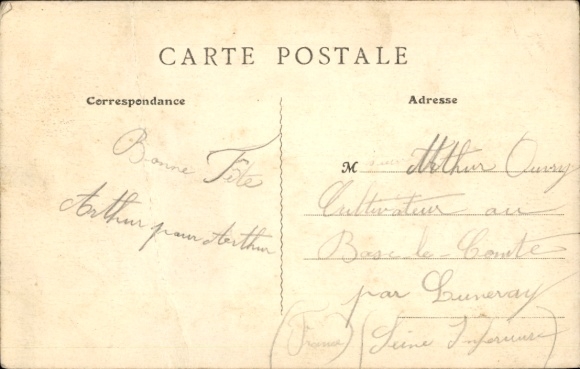 CARTE POSTALE
Correspondance
Adresse
Bonne Fête
Arthur pour Arthur
M Arthur Ouvry
Cultivateur au
Bosc-le-Comte
par Luneray
(France) (Seine Inférieure)